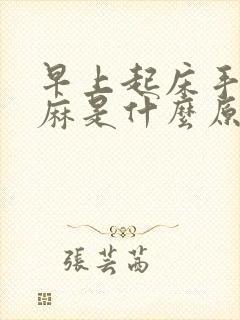 早上起床手
麻是什麼原
張芸茜